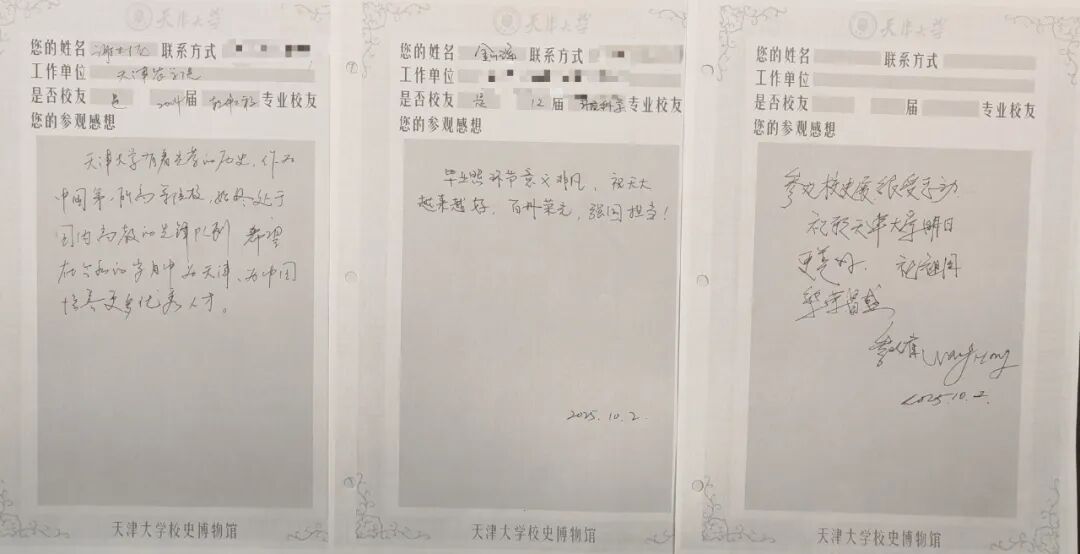 天津大学
您的姓名 联系方式
工作单位 天津
是否校友 是 2004届 专业校友
您的参观感想
天津大学有着光荣的历史，作为
中国第一所高等院校，始终处于
国内高教的先锋队列 希望
在今后的岁月中为天津、为中国
培养更多优秀人才。
天津大学校史博物馆
您的姓名 联系方式
工作单位
是否校友 是 12届 专业校友
您的参观感想
毕业照环节意义非凡，祝天大
越来越好，百卅荣光，强国担当！
2025.10.2.
天津大学校史博物馆
天津大学
您的姓名 联系方式
工作单位
是否校友 届 专业校友
您的参观感想
参观校史展，很受感动
祝愿天津大学明日
更美好. 祝祖国
繁荣昌盛
2025.10.2.
天津大学校史博物馆